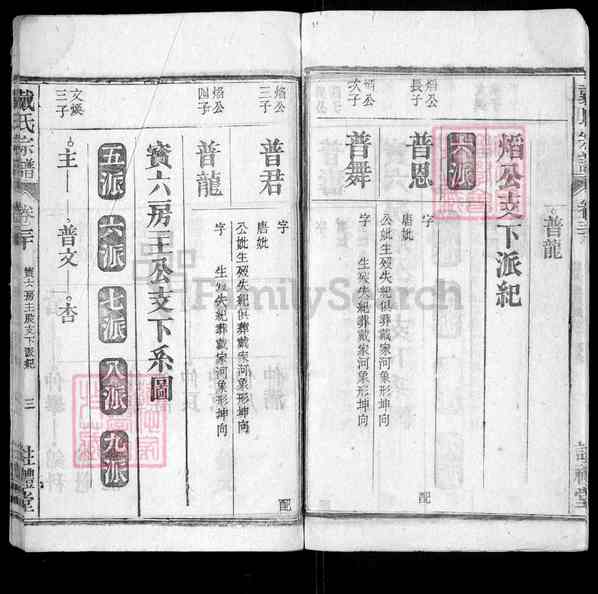 普龍
焰公支下派紀
六派
焰公
長子
普恩
唐妣
字
公妣生歿失紀俱葬戴家河象形坤向
焰公
次子
普舞
字
生歿失紀葬戴家河象形坤向
配
焰公
三子
普君
字
唐妣
公妣生歿失紀葬戴家河象形坤向
焰公
四子
普龍
字
生歿失紀葬戴家河象形坤向
配
寶六房主公支下系圖
五派
六派
七派
八派
九派
文煥
三子
主
普文
杏
戴氏宗譜
卷三十
寶六房主公支下派紀
三
註禮堂
FamilySearch